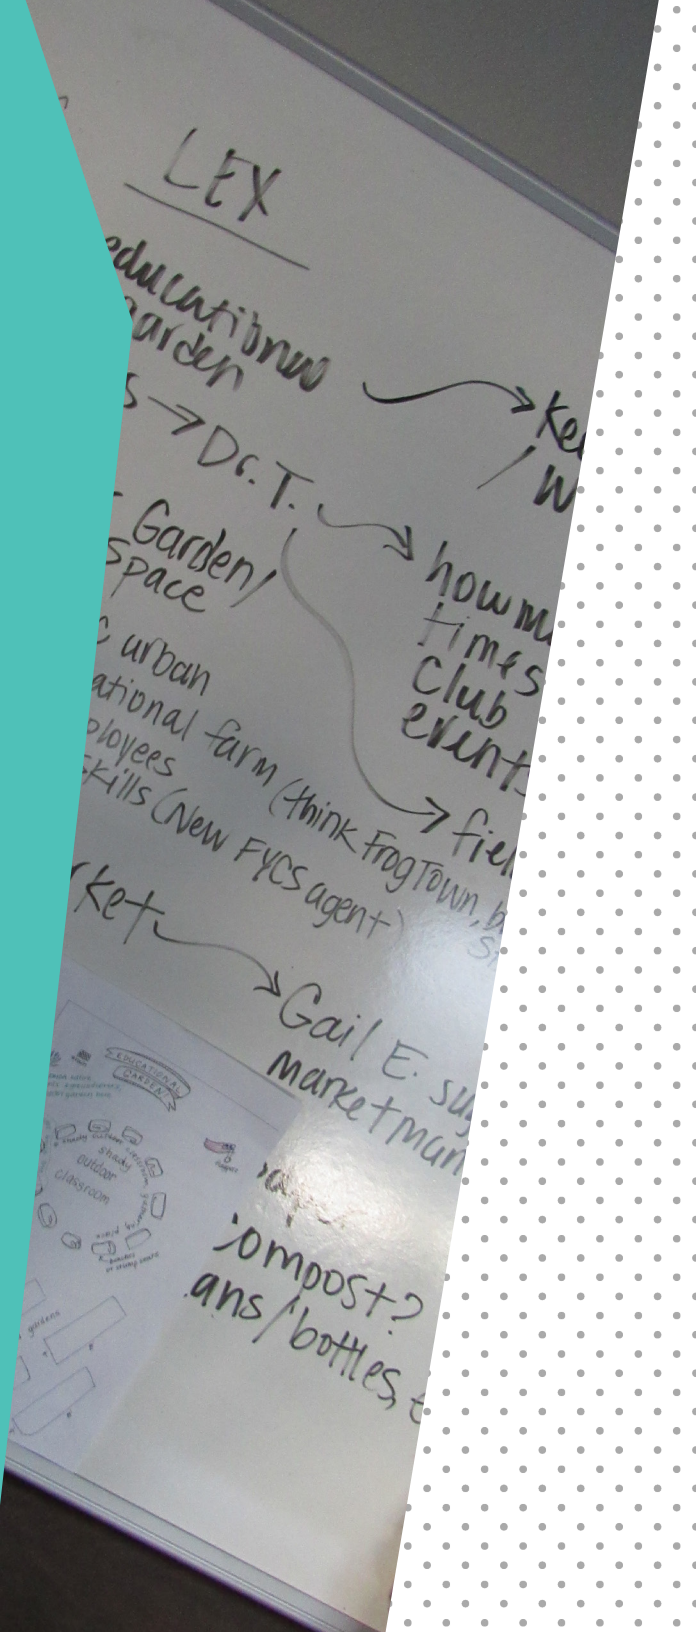 LEX
educational
garden
s → Dr. T.
Ke
/ W
how m
times
Club
events
Garden/
Space
c urban
ational farm (think Frog Town, b
ployees
skills (New FYCS agent)
fiel
rket
Gail E. su
market man
EDUCATIONAL
GARDEN
shady
outdoor
classroom
gardens
ompost?
ans/bottles, e